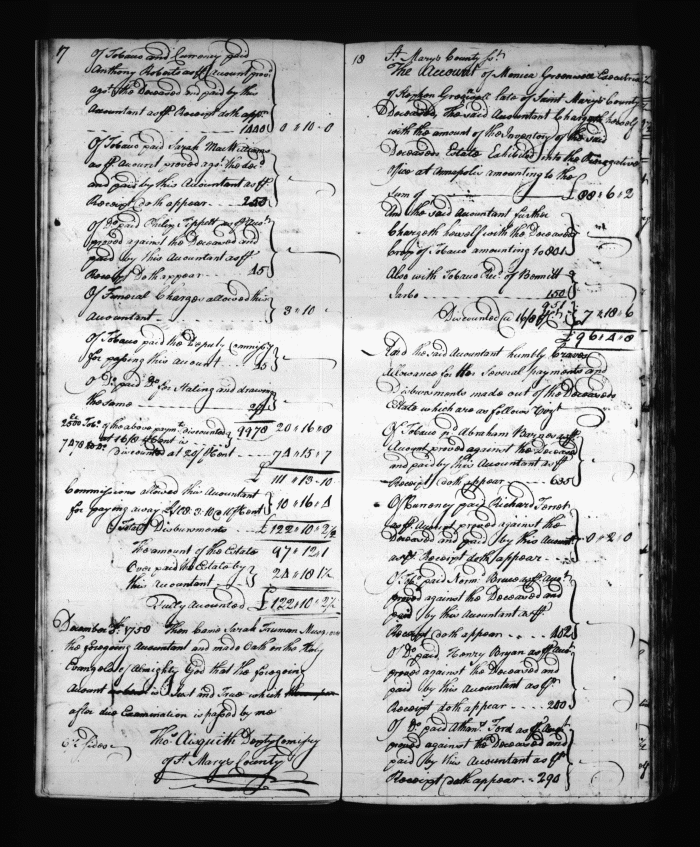 17
Of Tobacco and Currency paid
Anthony Roberts as ⅌ Account prov.
agt. the Deceased and paid by this
Accountant as ⅌ Receipt doth appr.
1000 0 " 10 " 0
Of Tobacco paid Sarah MacWilliams
as ⅌ Account proved agt. the dec.
and paid by this Accountant as ⅌
Receipt doth appear 250
of Do. paid Philip Tippett as ⅌ Acct.
proved against the Deceased and
paid by this Accountant as ⅌
Receipt Doth appear 45
Of Funeral Charges allowed this
Accountant 3 " 10 "
Of Tobacco paid the Deputy Commissy
for passing this Account 45
o Do. paid Do. for Stating and drawing
the same
2500 Tob. of the above paymt. discounted 9978 20 " 16 " 8
at 16/8 ⅌ Cent is
7478 Do. Discounted at 20/ ⅌ Cent 74 " 15 " 7
£ 111 " 13 " 10
Commissions allowed this Accountant
for paying away 10 " 16 " 4
Total Disbursments £ 122 " 10 " 2½
The amount of the Estate 97 " 12 " 1
Over paid the Estate by
this Accountant 24 " 18 " 1½
Fully Accounted £ 122 " 10 " 2½
December 1758 Then Came Sarah Truman
the foregoing Accountant and made Oath on the Holy
Evangels of Almighty God that the foregoing
Account is Just and True which
after due Examination is passed by me
Sides Thos. Aisquith Depty Comissy
of St. Mary's County
18 St. Mary's County Sct.
The Account of Monica Greenwell Executrix
of Stephen Greenwell late of Saint Mary's County
Deceased The said Accountant Chargeth herself
with the amount of the Inventory of the Said
Deceaseds Estate Exhibited into the Prerogative
Office at Annapolis amounting to the
Sum of £ 88 " 6 " 2
And the said Accountant further
Chargeth herself with the Deceaseds
Crop of Tobacco amounting to 801
Also with Tobacco Recd. of Bennett
Jarbo 150
951
Discounted @ 16/8 ⅌ 7 " 18 " 6
£ 96 " 4 " 8
And the said Accountant humbly Craves
Allowance for the Several Payments and
Disbursments made out of the Deceaseds
Estate which are as follows Vizt
Of Tobacco pd. Abraham Barnes as ⅌
Account proved against the Deceased
and paid by this Accountant as ⅌
Receipt doth appear 635
Of Currency paid Richard
as ⅌ Account proved against the
Deceased and paid by this Accountt
as ⅌ Receipt doth appear 0 " 2 " 0
Of To. paid Norm. Bruce as ⅌ Acct.
proved against the Deceased and
paid by this Accountant as ⅌
Receipt doth appear 452
Of Do. paid Henry Bryan as ⅌ Acct
proved against the Deceased and
paid by this Accountant as ⅌
Receipt doth appear 200
Of Do. paid Athans. Ford as ⅌ Acct
proved against the Deceased and
paid by this Accountant as ⅌
Receipt doth appear 290